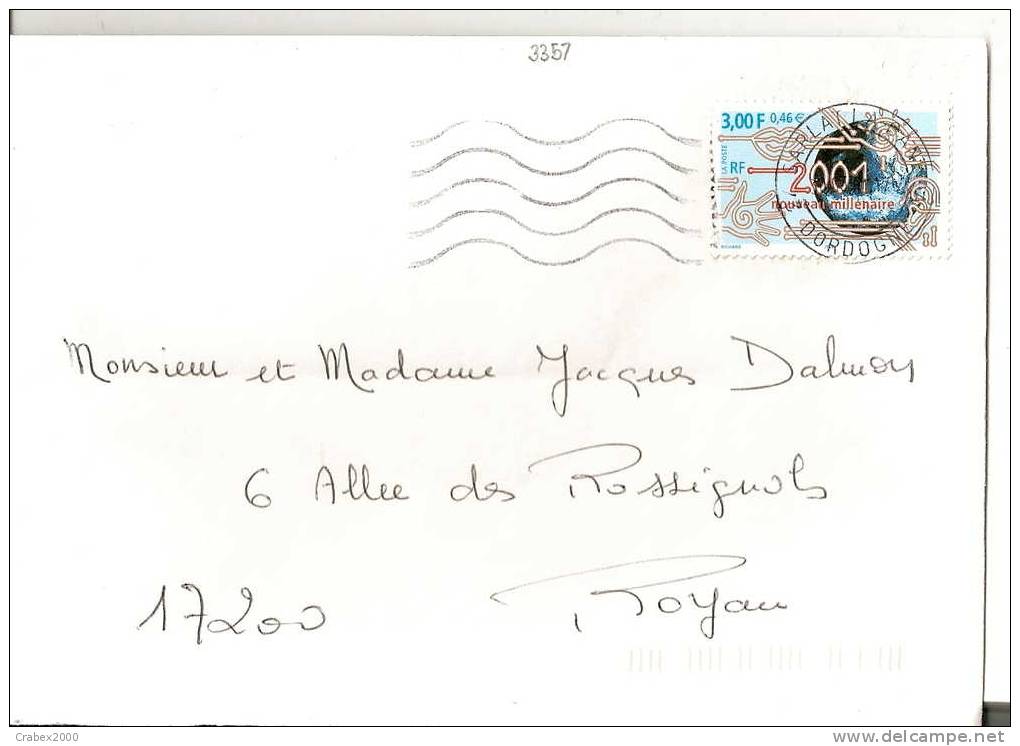 3357
3,00 F 0,46 €
LA POSTE
RF
2001
nouveau millénaire
DORDOGNE
Monsieur et Madame Jacques Dalmon
6 Allee des Rossignols
17200 Royan
Crabex2000
www.delcampe.net